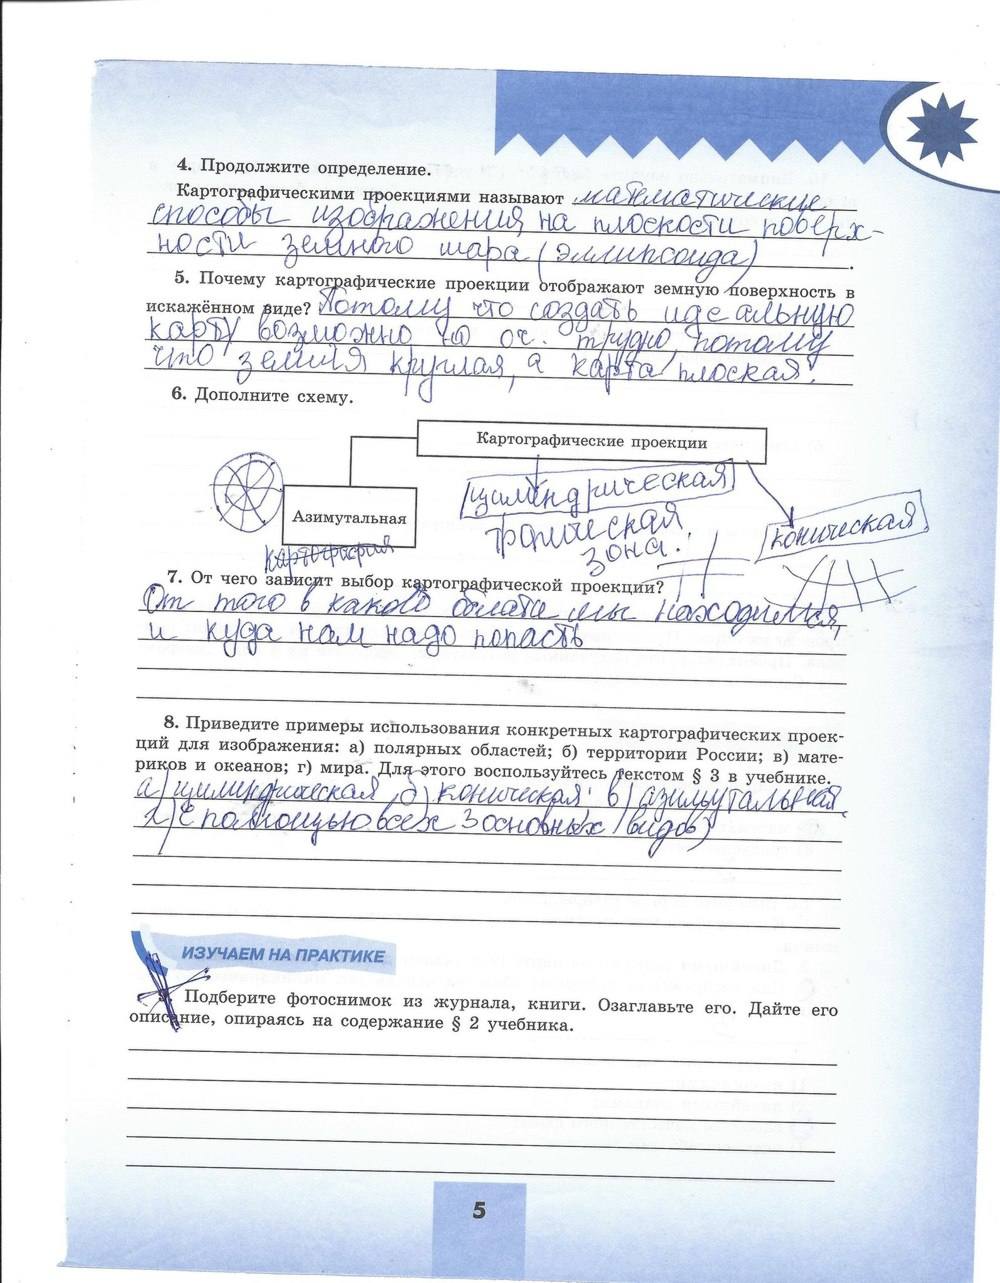 4. Продолжите определение.
Картографическими проекциями называют математические
способы изображения, на плоскости поверх-
ности земного шара (эллипсоида).
5. Почему картографические проекции отображают земную поверхность в
искажённом виде? Потому что создать идеальную
карту возможно но оч. трудно, потому
что земля круглая, а карта плоская.
6. Дополните схему.
Картографические проекции
Азимутальная
цилиндрическая
зона.
коническая
картография
7. От чего зависит выбор картографической проекции?
От того в какой мы находимся,
и куда нам надо попасть
8. Приведите примеры использования конкретных картографических проек-
ций для изображения: а) полярных областей; б) территории России; в) мате-
риков и океанов; г) мира. Для этого воспользуйтесь текстом § 3 в учебнике.
а) цилиндрическая, б) коническая; в) азимутальная
г) с помощью всех 3 основных видов)
ИЗУЧАЕМ НА ПРАКТИКЕ
9. Подберите фотоснимок из журнала, книги. Озаглавьте его. Дайте его
описание, опираясь на содержание § 2 учебника.
5